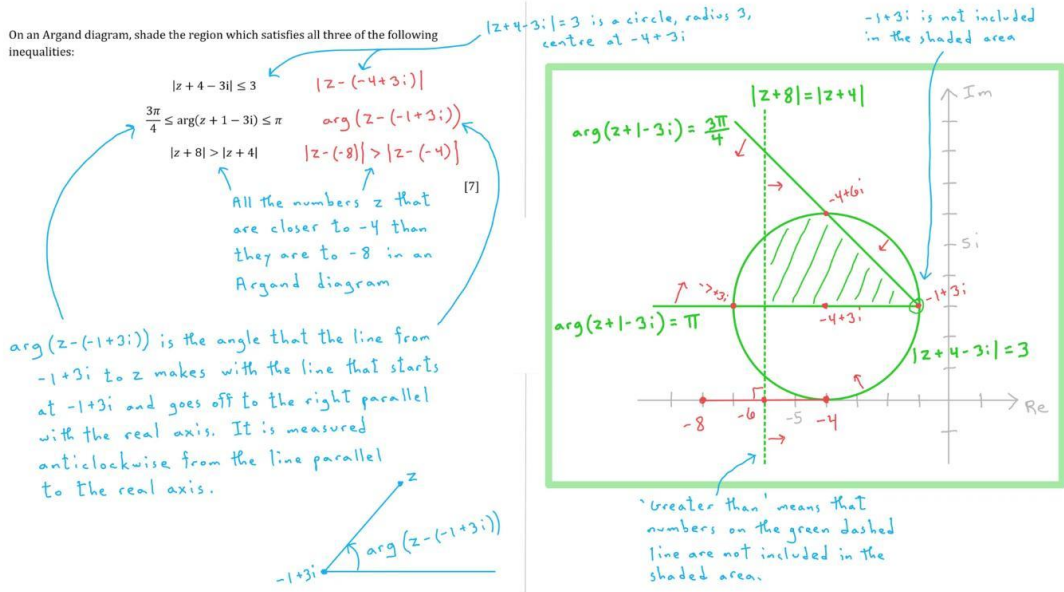 On an Argand diagram, shade the region which satisfies all three of the following
inequalities:
|z + 4 − 3i| ≤ 3
3π/4 ≤ arg(z + 1 − 3i) ≤ π
|z + 8| > |z + 4|
[7]
|z-(-4+3i)|
arg(z-(-1+3i))
|z-(-8)| > |z-(-4)|
|z+4-3i|=3 is a circle, radius 3,
centre at -4+3i
All the numbers z that
are closer to -4 than
they are to -8 in an
Argand diagram
arg(z-(-1+3i)) is the angle that the line from
-1+3i to z makes with the line that starts
at -1+3i and goes off to the right parallel
with the real axis. It is measured
anticlockwise from the line parallel
to the real axis.
z
arg(z-(-1+3i))
-1+3i
-1+3i is not included
in the shaded area
|z+8|=|z+4|
Im
arg(z+1-3i)=3π/4
-4+6i
5i
-1+3i
-4+3i
arg(z+1-3i)=π
|z+4-3i|=3
-8
-6
-5
-4
Re
'Greater than' means that
numbers on the green dashed
line are not included in the
shaded area.